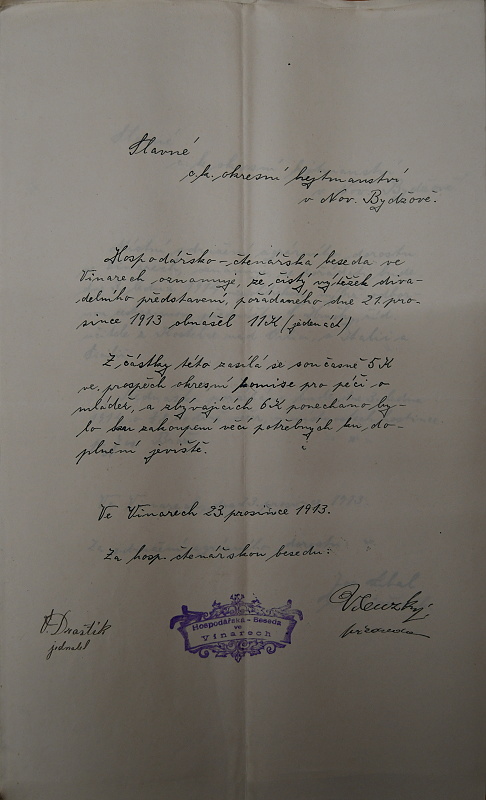 Slavné
c.k. okresní hejtmanství
v Nov. Bydžově.
Hospodářsko-čtenářská beseda ve
Vinarech oznamuje, že čistý výtěžek diva-
delního představení, pořádaného dne 21 pro-
since 1913 obnášel 11 K (jedenáct)
Z částky této zasílá se současně 5 K
ve prospěch okresní komise pro péči o
mládež, a zbývajících 6 K ponecháno by-
lo ku zakoupení věcí potřebných ku do-
plnění jeviště.
Ve Vinarech 23. prosince 1913.
Za hosp. čtenářskou besedu:
V. Draštík
jednatel
Hospodářská-Beseda
ve
Vinarech
předseda